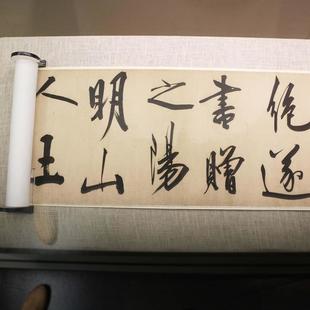 絶遂
書贈
之陽
明山
人王